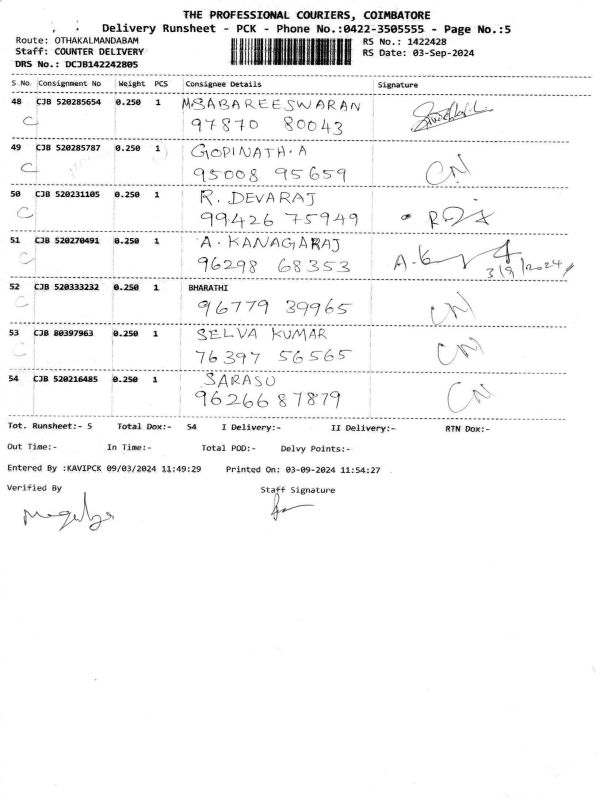 THE PROFESSIONAL COURIERS, COIMBATORE
Delivery Runsheet - PCK - Phone No.:0422-3505555 - Page No.:5
Route: OTHAKALMANDABAM RS No.: 1422428
Staff: COUNTER DELIVERY RS Date: 03-Sep-2024
DRS No.: DCJB142242805
S No. Consignment No Weight PCS Consignee Details Signature
48 CJB 520285654 0.250 1 M SABAREESWARAN
C 97870 80043
49 CJB 520285787 0.250 1 GOPINATH.A
C 95008 95659 CN
50 CJB 520231105 0.250 1 R. DEVARAJ
C 99426 75949
51 CJB 520270491 0.250 1 A. KANAGARAJ
C 96298 68353 3/9/2024
52 CJB 520333232 0.250 1 BHARATHI
C 96779 39965 CN
53 CJB 80397963 0.250 1 SELVA KUMAR
C 76397 56565 CN
54 CJB 520216485 0.250 1 SARASU
96266 87879 CN
Tot. Runsheet:- 5 Total Dox:- 54 I Delivery:- II Delivery:- RTN Dox:-
Out Time:- In Time:- Total POD:- Delvy Points:-
Entered By :KAVIPCK 09/03/2024 11:49:29 Printed On: 03-09-2024 11:54:27
Verified By Staff Signature